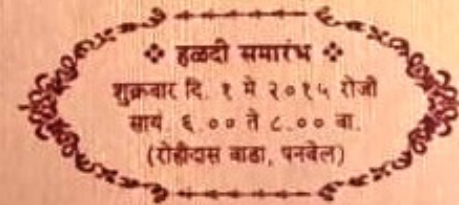 ❖ हळदी समारंभ ❖
शुक्रवार दि. १ मे २०१५ रोजी
सायं. ६.०० ते ८.०० वा.
(रोहीदास वाडा, पनवेल)